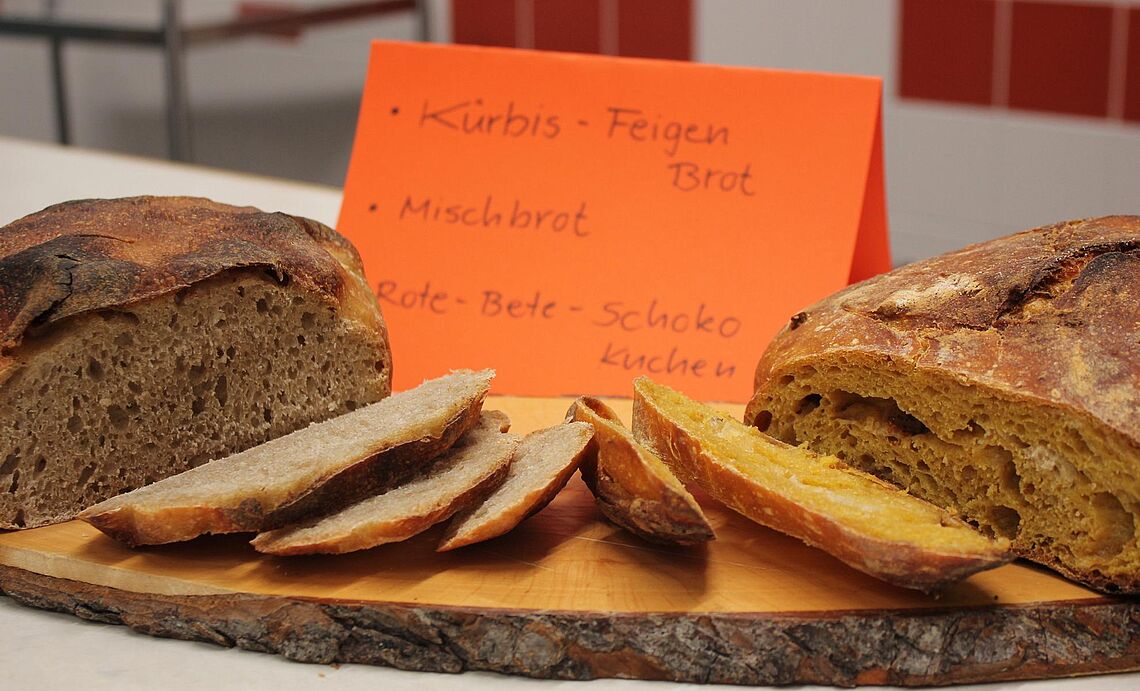 • Kürbis - Feigen
Brot
• Mischbrot
Rote - Bete - Schoko
Kuchen